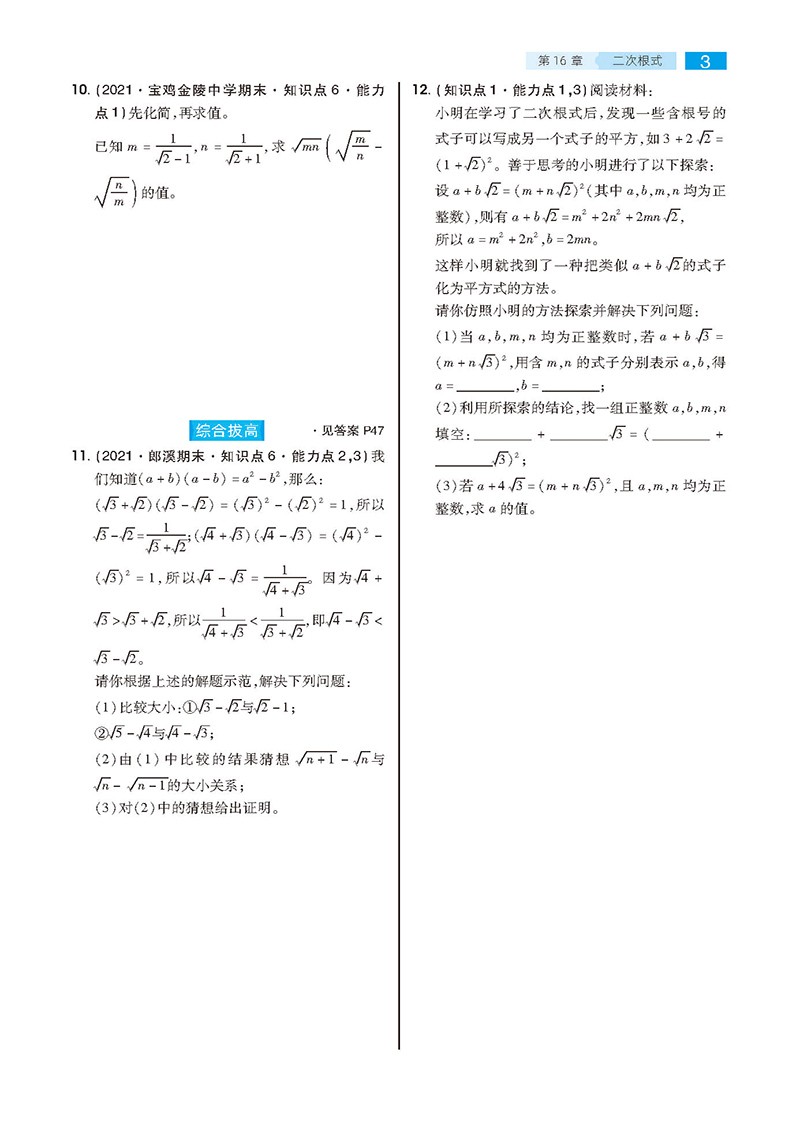 第 16 章 二次根式 3
10. (2021·宝鸡金陵中学期末·知识点 6·能力
点 1) 先化简,再求值。
已知 m = 1/(√2-1), n = 1/(√2+1), 求 √mn (√(m/n) -
√(n/m)) 的值。
综合拔高 ·见答案 P47
11. (2021·郎溪期末·知识点 6·能力点 2,3) 我
们知道(a+b)(a-b)=a²-b²,那么:
(√3+√2)(√3-√2)=(√3)²-(√2)²=1,所以
√3-√2=1/(√3+√2);(√4+√3)(√4-√3)=(√4)²-
(√3)²=1,所以√4-√3=1/(√4+√3)。因为√4+
√3>√3+√2,所以1/(√4+√3)<1/(√3+√2),即√4-√3<
√3-√2。
请你根据上述的解题示范,解决下列问题:
(1)比较大小:①√3-√2与√2-1;
②√5-√4与√4-√3;
(2)由(1)中比较的结果猜想 √(n+1)-√n与
√n-√(n-1)的大小关系;
(3)对(2)中的猜想给出证明。
12. (知识点 1·能力点 1,3) 阅读材料:
小明在学习了二次根式后,发现一些含根号的
式子可以写成另一个式子的平方,如 3+2√2=
(1+√2)²。善于思考的小明进行了以下探索:
设 a+b√2=(m+n√2)²(其中 a,b,m,n 均为正
整数),则有 a+b√2=m²+2n²+2mn√2,
所以 a=m²+2n²,b=2mn。
这样小明就找到了一种把类似 a+b√2的式子
化为平方式的方法。
请你仿照小明的方法探索并解决下列问题:
(1)当 a,b,m,n 均为正整数时,若 a+b√3=
(m+n√3)²,用含 m,n 的式子分别表示 a,b,得
a=________,b=________;
(2)利用所探索的结论,找一组正整数 a,b,m,n
填空:________+________√3=(________+
________√3)²;
(3)若 a+4√3=(m+n√3)²,且 a,m,n 均为正
整数,求 a 的值。